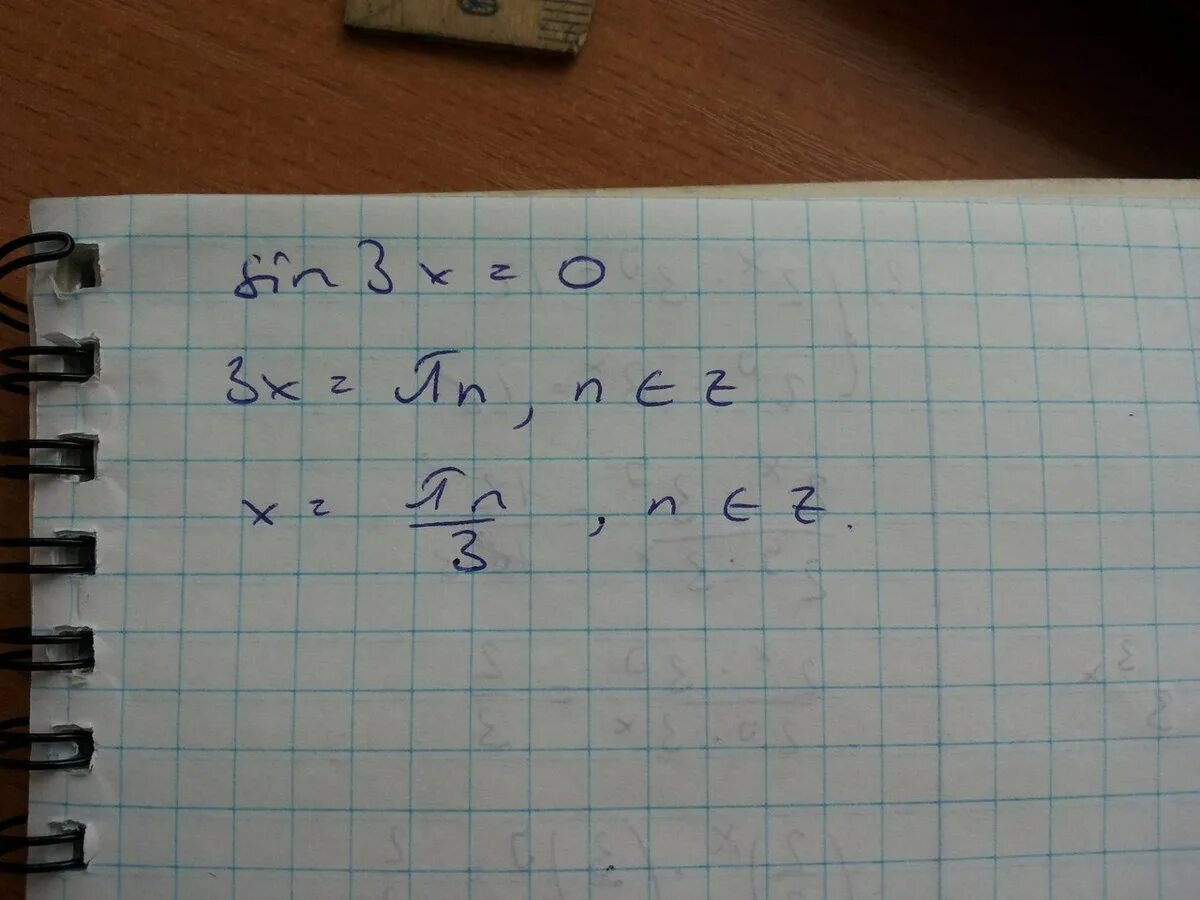 sin 3x = 0
3x = πn, n ∈ z
x = πn/3, n ∈ z.